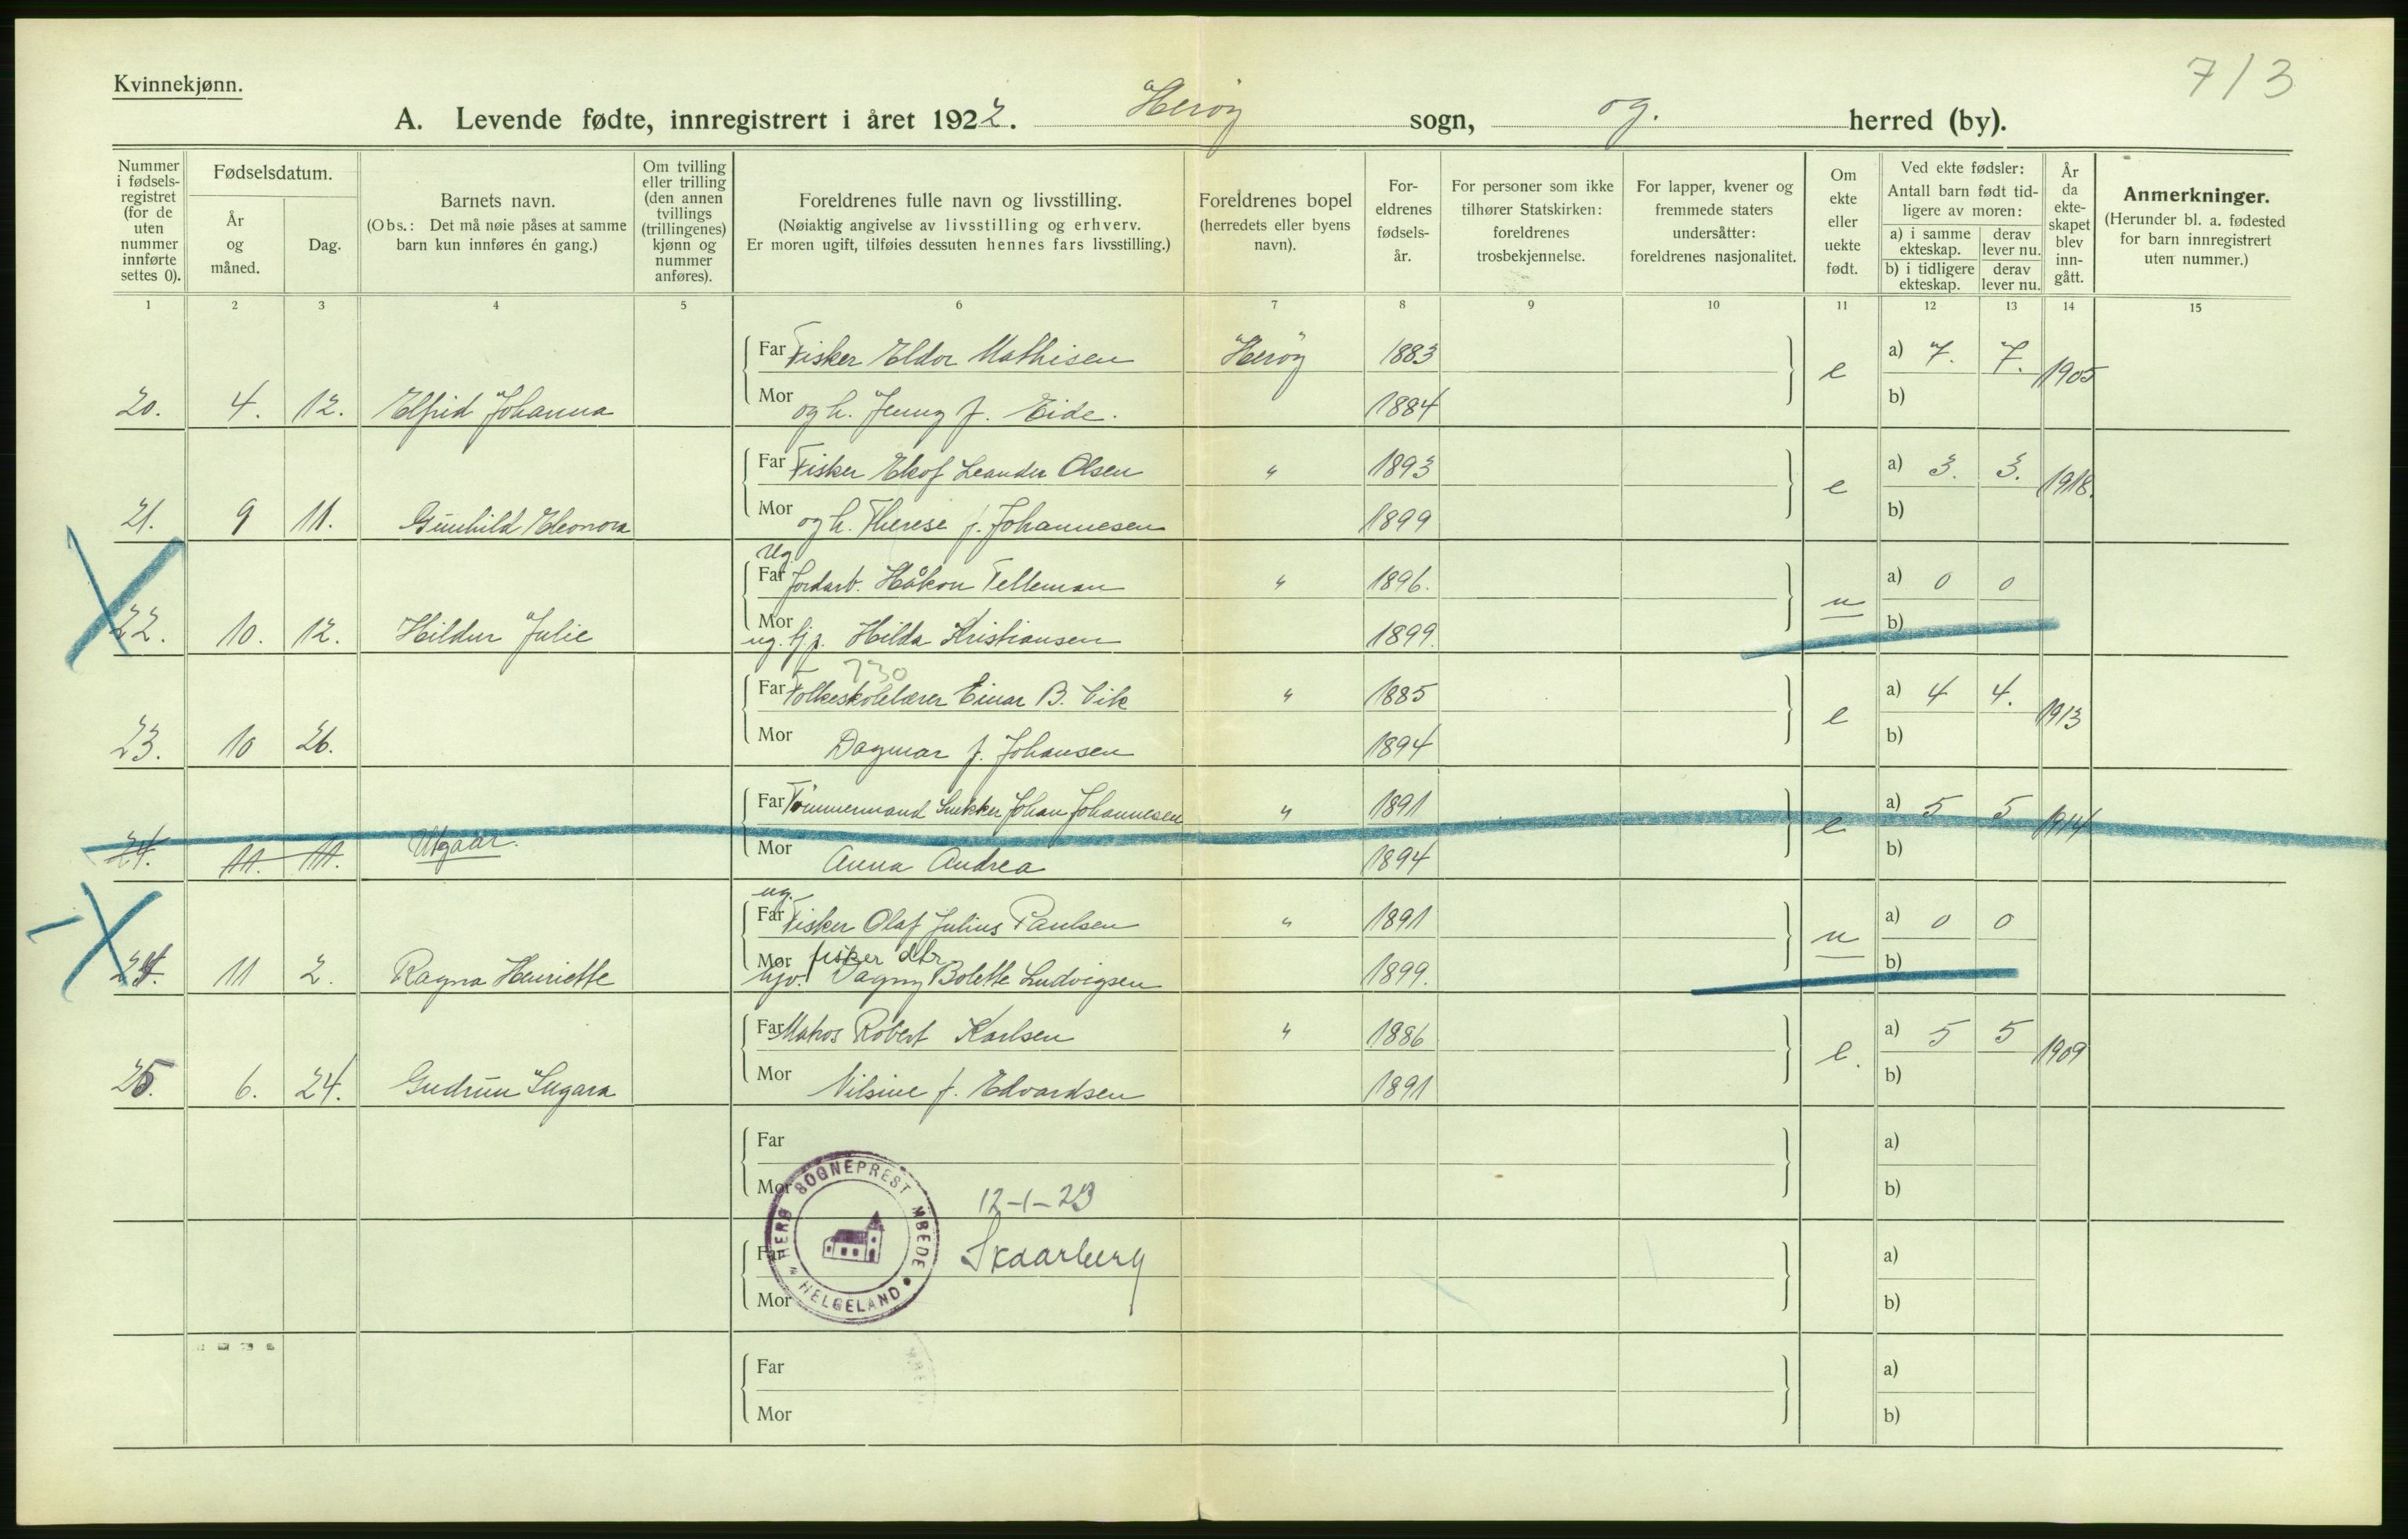 713
Kvinnekjønn.
A. Levende fødte, innregistrert i året 1922. Herøy sogn, og. herred (by).
Nummer i fødsels-registret (for de uten nummer innførte settes 0).
Fødselsdatum.
År og måned.
Dag.
Barnets navn.
(Obs.: Det må nøie påses at samme barn kun innføres én gang.)
Om tvilling eller trilling (den annen tvillings (trillingenes) kjønn og nummer anføres).
Foreldrenes fulle navn og livsstilling.
(Nøiaktig angivelse av livsstilling og erhverv.
Er moren ugift, tilføies dessuten hennes fars livsstilling.)
Foreldrenes bopel (herredets eller byens navn).
For-eldrenes fødsels-år.
For personer som ikke tilhører Statskirken: foreldrenes trosbekjennelse.
For lapper, kvener og fremmede staters undersåtter: foreldrenes nasjonalitet.
Om ekte eller uekte født.
Ved ekte fødsler: Antall barn født tid-ligere av moren:
a) i samme ekteskap. derav lever nu.
b) i tidligere ekteskap. derav lever nu.
År da ekte-skapet blev inn-gått.
Anmerkninger.
(Herunder bl. a. fødested for barn innregistrert uten nummer.)
1 2 3 4 5 6 7 8 9 10 11 12 13 14 15
Far Fisker Eldor Mathisen Herøy 1883 e a) 7. 7. 1905
20. 4. 12. Elfrid Johanna Mor og h. Jenny f. Eide. 1884 b)
Far Fisker Elof Leander Olsen " 1893 e a) 3. 3. 1918.
21. 9 11. Gunhild Eleonora Mor og h. Therese f. Johannesen 1899 b)
ug
Far Jordarb. Håkon Telleman " 1896. u a) 0 0
22. 10. 12. Hildur Julie Mor ug. tj.p. Hilda Kristiansen 1899. b)
730
Far Folkeskolelærer Einar B. Vik " 1885 e a) 4 4. 1913
23. 10 26. Mor Dagmar f. Johansen 1894 b)
Far Tømmermand Snekker Johan Johannesen " 1891 e a) 5 5 1914
24. 11. 11. Utgaar. Mor Anna Andrea 1894 b)
ug.
Far Fisker Olaf Julius Paulsen " 1891 u a) 0 0
fisker dtr
24. 11 2. Ragna Henriette Mor hjv. Dagny Bolette Ludvigsen 1899. b)
Far Matros Robert Karlsen " 1886 e. a) 5 5 1909
25. 6. 24. Gudrun Ingara Mor Nilsine f. Edvardsen 1891 b)
Far a)
Mor b)
HERØ SOGNEPREST MBEDE HELGELAND
12-1-23
Far Skaarberg a)
Mor b)
Far a)
Mor b)